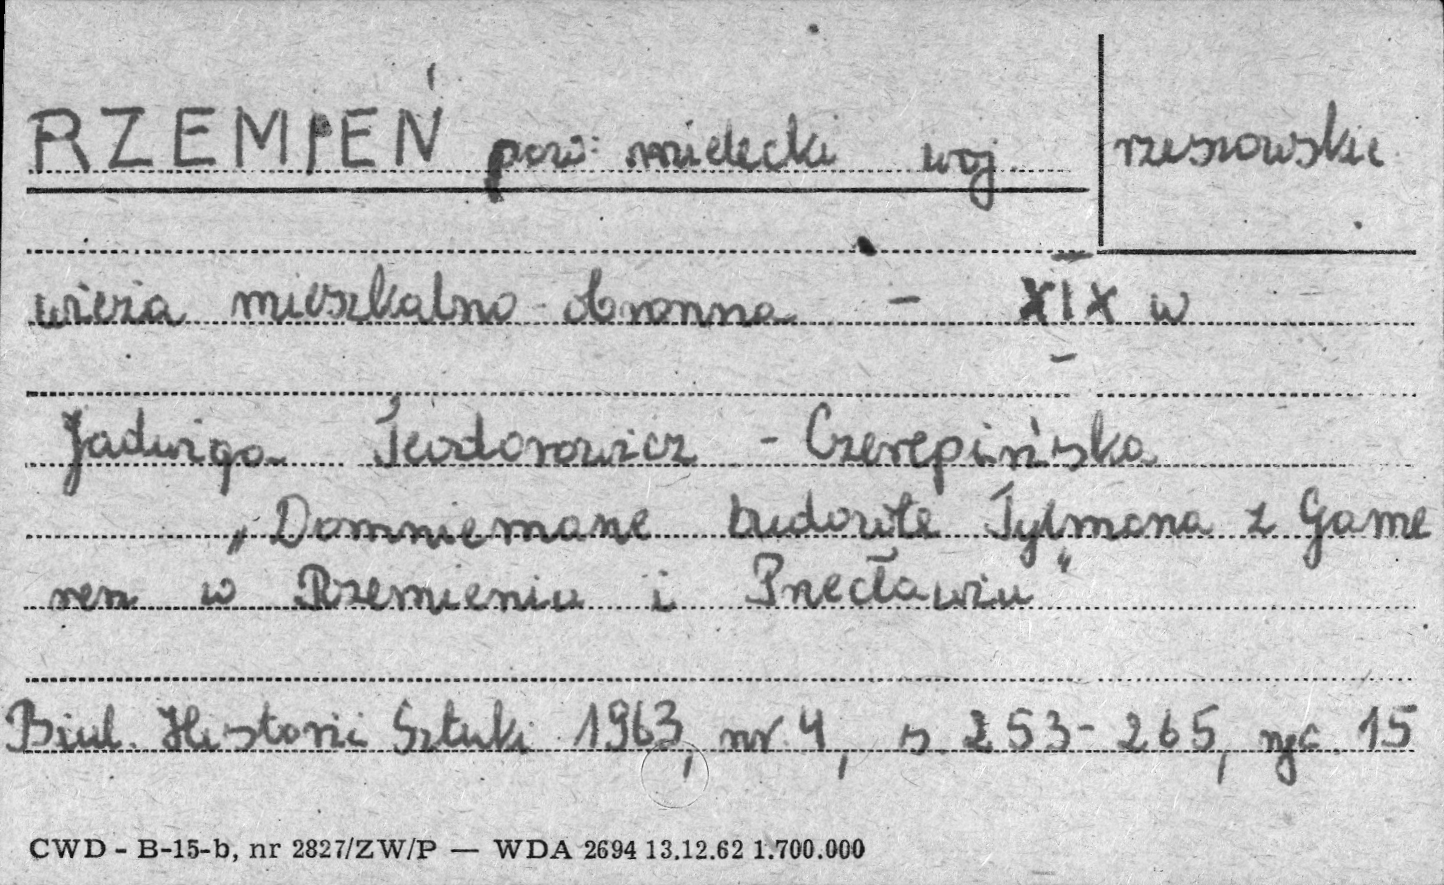 RZEMIEŃ pow: mielecki woj. rzeszowskie
wieża mieszkalno-obronna – XIX w
Jadwiga Teodorowicz - Czerepińska
„Domniemane budowle Tylmana z Game
ren w Rzemieniu i Przecławiu"
Biul. Historii Sztuki 1963, nr 4, s. 253-265, ryc. 15
CWD - B-15-b, nr 2827/ZW/P — WDA 2694 13.12.62 1.700.000